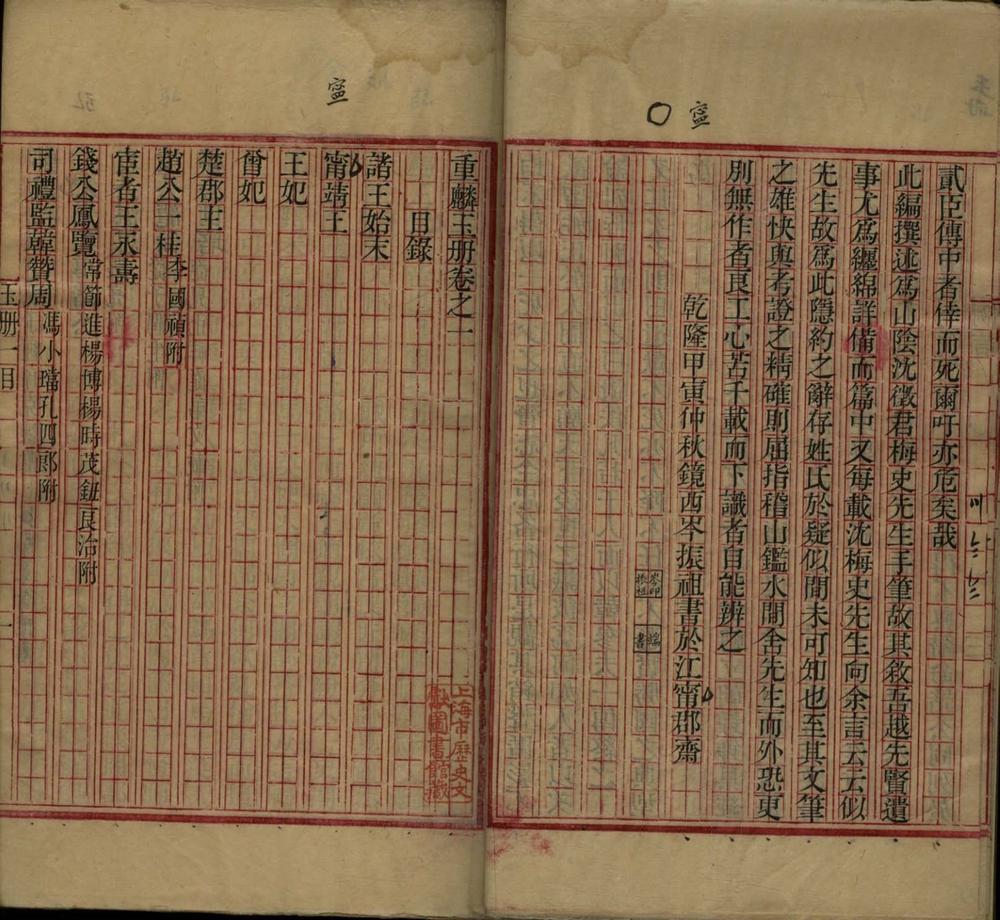 貳臣傳中者倖而死爾吁亦危矣哉
此編撰述爲山陰沈徵君梅史先生手筆故其敘吾越先賢遺
事尤爲纏綿詳備而篇中又每載沈梅史先生向余言云云似
先生故爲此隱約之辭存姓氏於疑似間未可知也至其文筆
之雄快與考證之精確則屈指稽山鑑水間舍先生而外恐更
別無作者良工心苦千載而下識者自能辨之
乾隆甲寅仲秋鏡西岑振祖書於江甯郡齋
岑印振祖
寍
重麟玉册卷之一
目錄
諸王始末
甯靖王
王妃
曾妃
楚郡主
趙公一桂李國禎附
宦者王永壽
錢公鳳覽常節進楊博楊時茂鈕良治附
司禮監韓贊周馮小璫孔四郎附
玉册一目
一
寍
上海市歷史文
獻圖書館藏